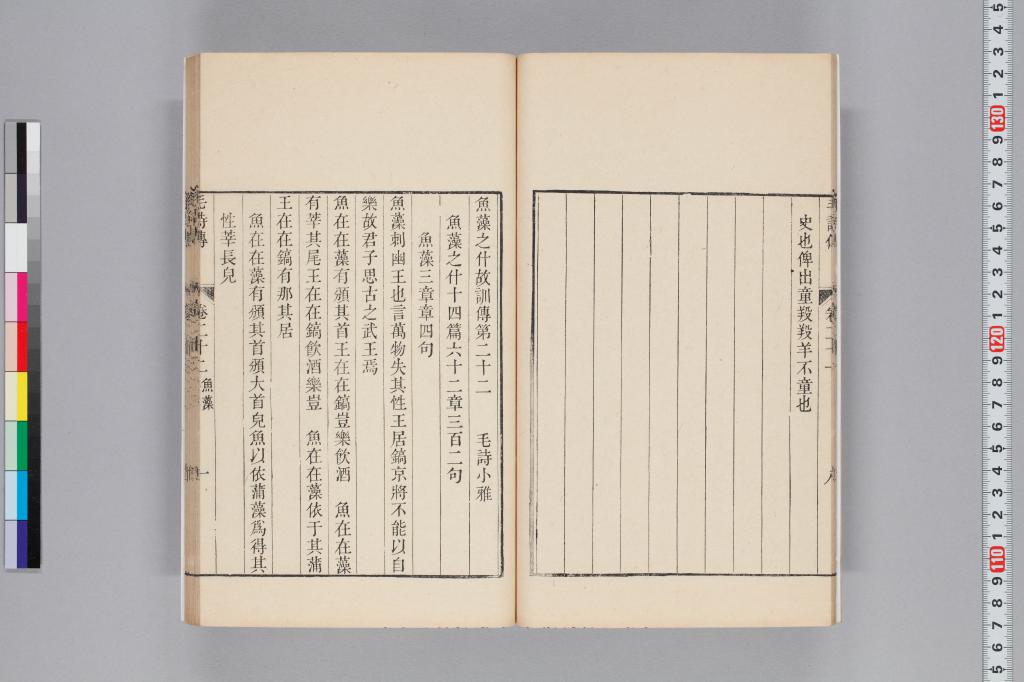 史也俾出童羖羖羊不童也
魚藻之什故訓傳第二十二　毛詩小雅
魚藻之什十四篇六十二章三百二句
魚藻三章章四句
魚藻刺幽王也言萬物失其性王居鎬京將不能以自
樂故君子思古之武王焉
魚在在藻有頒其首王在在鎬豈樂飲酒　魚在在藻
有莘其尾王在在鎬飲酒樂豈　魚在在藻依于其蒲
王在在鎬有那其居
魚在在藻有頒其首頒大首皃魚以依蒲藻爲得其
性莘長皃
毛詩傳　卷二十二　魚藻　一
5 4 3 2 1 130 9 8 7 6 5 4 3 2 1 120 9 8 7 6 5 4 3 2 1 110 9 8 7 6 5